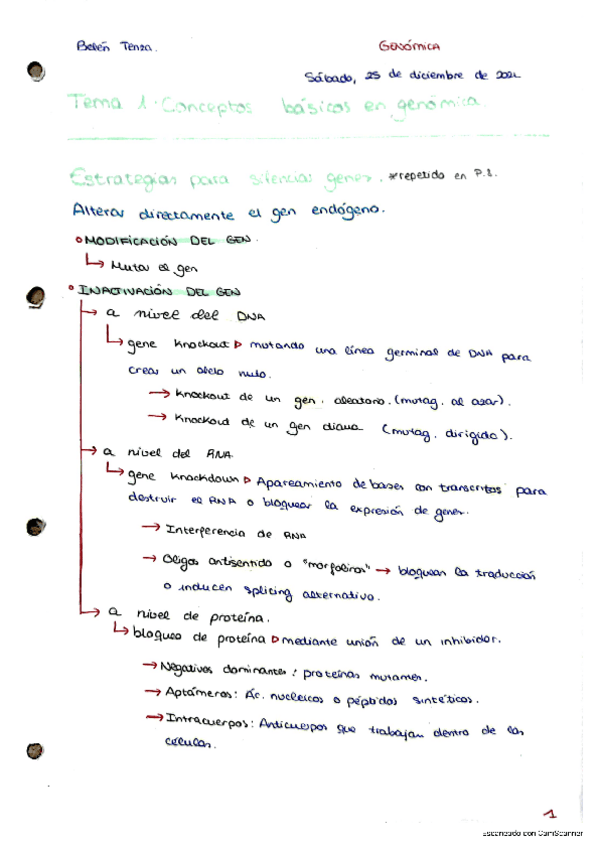 Belén Tenza.
GENÓMICA
Sábado, 25 de diciembre de 2021
Tema 1: Conceptos básicos en genómica.
Estrategias para silenciar genes. *repetido en P.8.
Alterar directamente el gen endógeno.
MODIFICACIÓN DEL GEN.
↳ Mutar el gen
INACTIVACIÓN DEL GEN
→ a nivel del DNA
↳ gene knockout ▷ mutando una línea germinal de DNA para
crear un alelo nulo.
→ Knockout de un gen aleatorio. (mutag. al azar).
→ Knockout de un gen diana (mutag. dirigida).
→ a nivel del RNA
↳ gene knockdown ▷ Apareamiento de bases con transcritos para
destruir el RNA o bloquear la expresión de genes.
→ Interferencia de RNA
→ Oligos antisentido o "morfolinos" → bloquean la traducción
o inducen splicing alternativo.
→ a nivel de proteína.
↳ bloqueo de proteína ▷ mediante unión de un inhibidor.
→ Negativos dominantes: proteínas mutantes.
→ Aptámeros: Ác. nucleicos o péptidos sintéticos.
→ Intracuerpos: Anticuerpos que trabajan dentro de las
células.
1
Escaneado con CamScanner